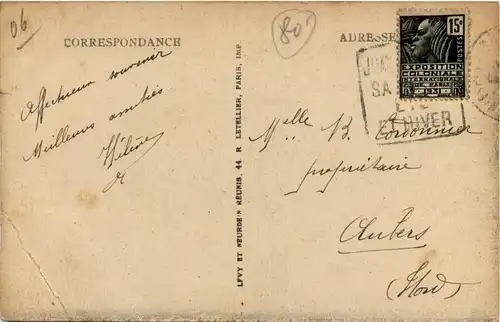 06
80
CORRESPONDANCE
ADRESSE
15c
POSTES
EXPOSITION
COLONIALE
INTERNATIONALE
PARIS 1931
JUAN
SA
ETE
ET HIVER
Affectueux souvenir
Meilleures amitiés
Hélène
LÉVY ET NEURDEIN RÉUNIS, 44 R LETELLIER, PARIS, IMP.
Melle B. Cordonnier
propriétaire
Aubers
(Nord)